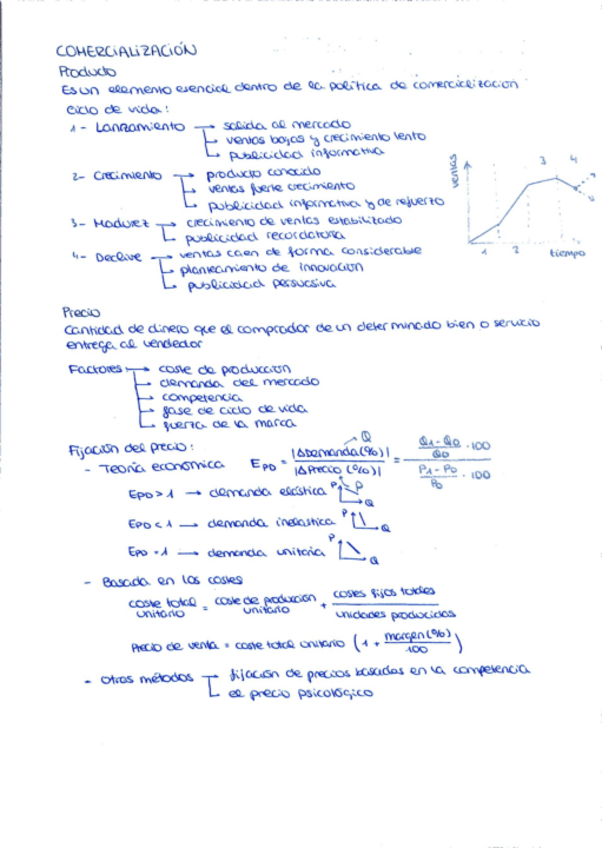 COMERCIALIZACIÓN
Producto
Es un elemento esencial dentro de la política de comercialización
Ciclo de vida:
1- Lanzamiento → salida al mercado
ventas bajas y crecimiento lento
publicidad informativa
2- Crecimiento → producto conocido
ventas fuerte crecimiento
publicidad informativa y de refuerzo
3- Madurez → crecimiento de ventas estabilizado
publicidad recordatoria
4- Declive → ventas caen de forma considerable
planteamiento de innovación
publicidad persuasiva
ventas
3 4
1 2 tiempo
Precio
Cantidad de dinero que el comprador de un determinado bien o servicio
entrega al vendedor
Factores → coste de producción
demanda del mercado
competencia
fase de ciclo de vida
fuerza de la marca
Fijación del precio:
- Teoría económica EPD = |ΔDemanda(%)| / |ΔPrecio (%)| = (Q1-Q0 / Q0 · 100) / (P1-P0 / P0 · 100)
Q
P
EPD > 1 → demanda elástica P Q
EPD < 1 → demanda inelástica P Q
EPD = 1 → demanda unitaria P Q
- Basada en los costes
coste total unitario = coste de producción unitario + costes fijos totales / unidades producidas
Precio de venta = coste total unitario (1 + margen(%) / 100)
- Otros métodos → fijación de precios basadas en la competencia
el precio psicológico